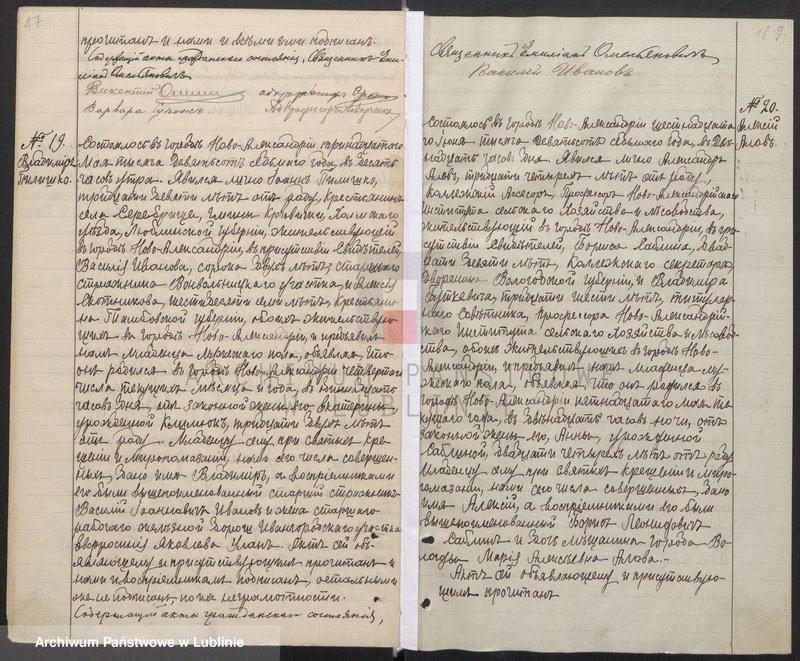 17
прочитанъ и нами и всѣми ими подписанъ.
Содержащій акты гражданскаго состоянія, Священникъ
Омельяновичъ
Викентій
Варвара
№ 19.
Владиміръ
Пилишко.
Состоялось въ городѣ Ново-Александріи тринадцатого
Мая тысяча девятьсотъ седьмого года, въ десять
часовъ утра. Явился лично Іоаннъ Пилишко,
тридцати девяти лѣтъ отъ роду, крестьянинъ
села Серебрище, гмины Кривички, Холмскаго
уѣзда, Люблинской губерніи, жительствующій
въ городѣ Ново-Александріи, въ присутствіи свидѣтелей,
Василія Иванова, сорока двухъ лѣтъ, старшаго
стражника участка и Алексѣя
Охотникова, шестидесяти семи лѣтъ, крестьяни-
на Тамбовской губерніи, обоихъ жительствую-
щихъ въ городѣ Ново-Александріи, и предъявилъ
намъ младенца мужескаго пола, объявляя, что
онъ родился въ городѣ Ново-Александріи четвертого
числа текущихъ мѣсяца и года, въ
часовъ дня, отъ законной жены его, Екатерины,
урожденной тридцати двухъ лѣтъ
отъ роду. Младенцу сему при святыхъ кре-
щеніи и мѵропомазаніи, нами сего числа совершен-
ныхъ, дано имя Владиміръ, а воспріемниками
его были вышепоименованный старшій стражникъ
Василій Іоанновичъ Ивановъ и жена старшаго
рабочаго желѣзной дороги Ивангородскаго участка
Яковлева Уланъ. Актъ сей объ-
являющему и присутствующимъ прочитанъ и
нами и воспріемникомъ подписанъ, остальными
же не подписанъ по ихъ неграмотности.
Содержащій акты гражданскаго состоянія,
Священникъ Омельяновичъ
Василій Ивановъ
№ 20.
Алексій
Аловъ.
Состоялось въ городѣ Ново-Александріи шестнадцата-
го Іюня тысяча девятьсотъ седьмого года, въ две-
надцать часовъ дня. Явился лично Александръ
Аловъ, тридцати четырехъ лѣтъ отъ роду,
Коллежскій Асессоръ, Профессоръ Ново-Александрійскаго
института сельскаго хозяйства и лѣсоводства,
жительствующій въ городѣ Ново-Александріи, въ при-
сутствіи свидѣтелей, Бориса Саблина, двад-
цати девяти лѣтъ, Коллежскаго секретаря,
дворянина Вологодской губерніи, и Владиміра
Буткевича, тридцати шести лѣтъ, титуляр-
наго совѣтника, профессора Ново-Александрій-
скаго Института сельскаго хозяйства и лѣсовод-
ства, обоихъ жительствующихъ въ городѣ Ново-
Александріи, и предъявилъ намъ младенца му-
жескаго пола, объявляя, что онъ родился въ
городѣ Ново-Александріи пятнадцатаго мая те-
кущаго года, въ двѣнадцать часовъ ночи, отъ
законной жены его, Анны, урожденной
Саблиной, двадцати четырехъ лѣтъ отъ роду.
Младенцу сему при святыхъ крещеніи и мѵро-
помазаніи, нами сего числа совершенныхъ, дано
имя Алексій, а воспріемниками его были
вышепоименованный Борисъ Леонидовичъ
Саблинъ и дочь мѣщанина города Во-
логды Марія Алексѣевна Алова.
Актъ сей объявляющему и присутствую-
щимъ прочитанъ
Archiwum Państwowe w Lublinie